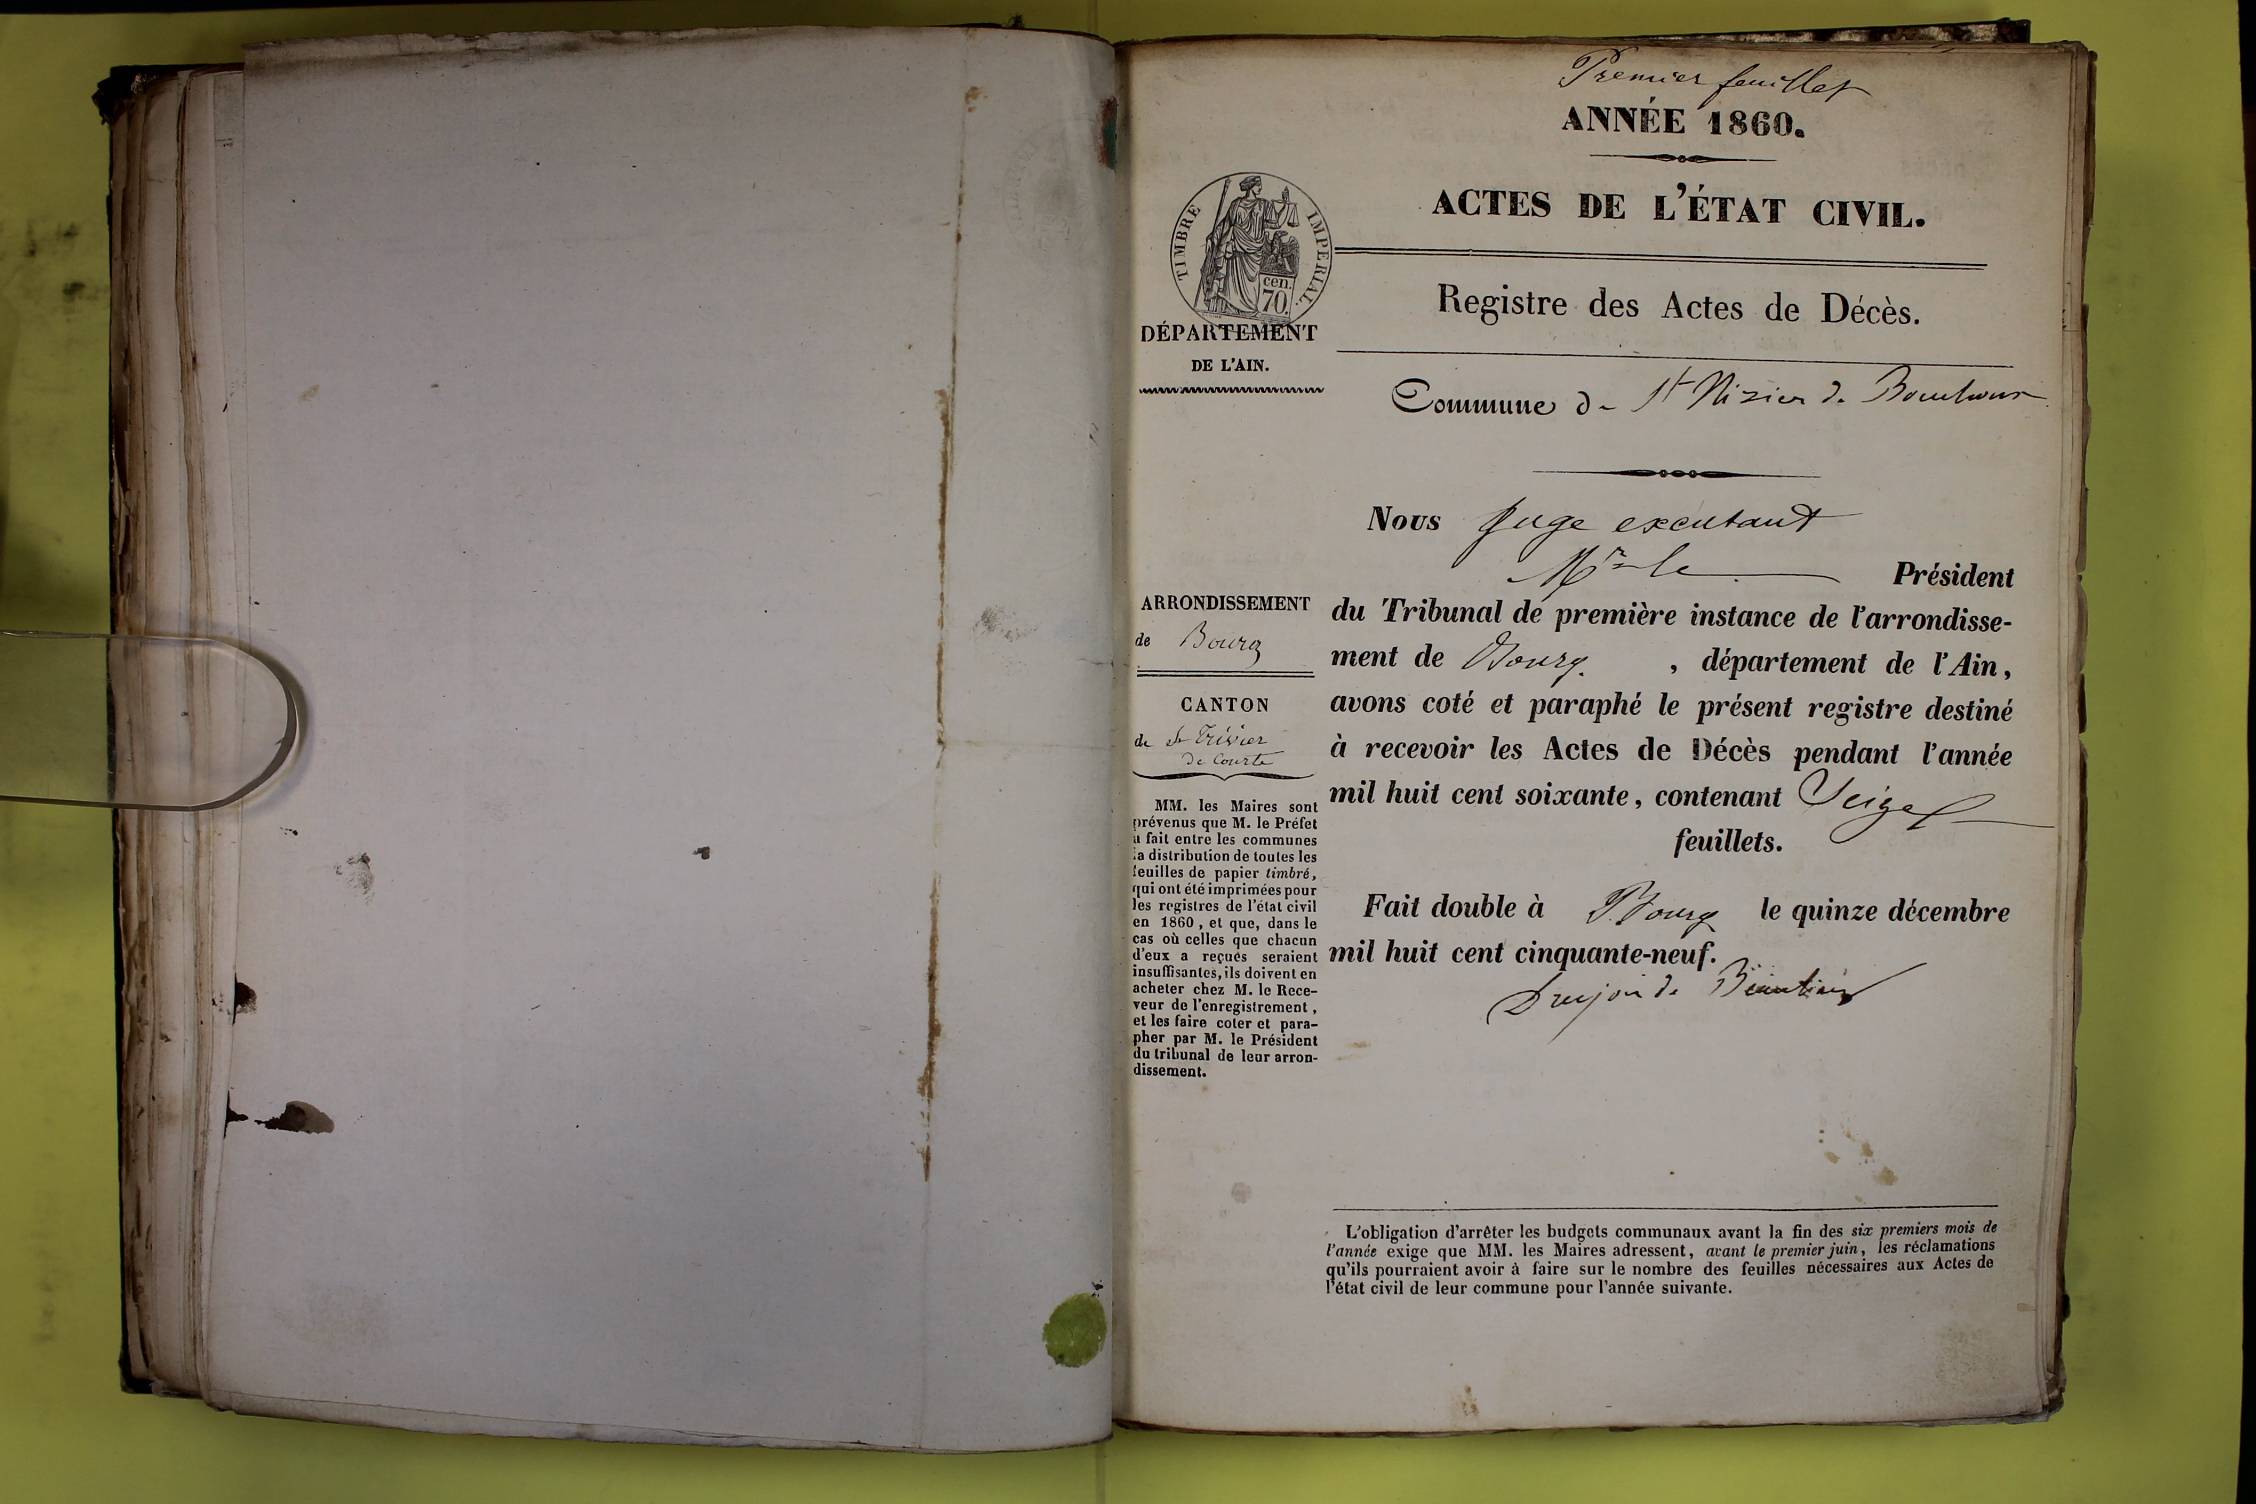 Premier feuillet
ANNÉE 1860.
ACTES DE L'ÉTAT CIVIL.
TIMBRE IMPERIAL.
cen.
70.
Registre des Actes de Décès.
DÉPARTEMENT
DE L'AIN.
Commune de St Nizier de
Nous Juge
Mr le Président
du Tribunal de première instance de l'arrondisse-
ment de Bourg. , département de l'Ain,
avons coté et paraphé le présent registre destiné
à recevoir les Actes de Décès pendant l'année
mil huit cent soixante, contenant Seize
feuillets.
Fait double à Bourg le quinze décembre
mil huit cent cinquante-neuf.
ARRONDISSEMENT
de Bourg
CANTON
de St Trivier
de Courte
MM. les Maires sont
prévenus que M. le Préfet
a fait entre les communes
la distribution de toutes les
feuilles de papier timbré,
qui ont été imprimées pour
les registres de l'état civil
en 1860, et que, dans le
cas où celles que chacun
d'eux a reçues seraient
insuffisantes, ils doivent en
acheter chez M. le Rece-
veur de l'enregistrement,
et les faire coter et para-
pher par M. le Président
du tribunal de leur arron-
dissement.
L'obligation d'arrêter les budgets communaux avant la fin des six premiers mois de
l'année exige que MM. les Maires adressent, avant le premier juin, les réclamations
qu'ils pourraient avoir à faire sur le nombre des feuilles nécessaires aux Actes de
l'état civil de leur commune pour l'année suivante.